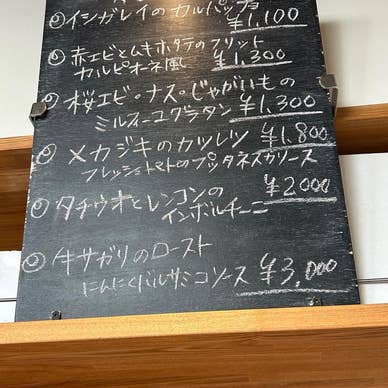 ◎イシガレイのカルパッチョ
¥1,100
◎赤エビとムキホタテのフリット
カルピオーネ風 ¥1,300
◎桜エビ・ナス・じゃがいもの
ミルフィーユグラタン ¥1,300
◎メカジキのカツレツ ¥1,800
フレッシュトマトのプッタネスカソース
◎タチウオとレンコンの ¥2000
インボルティーニ
◎牛サガリのロースト
にんにくバルサミコソース ¥3,000